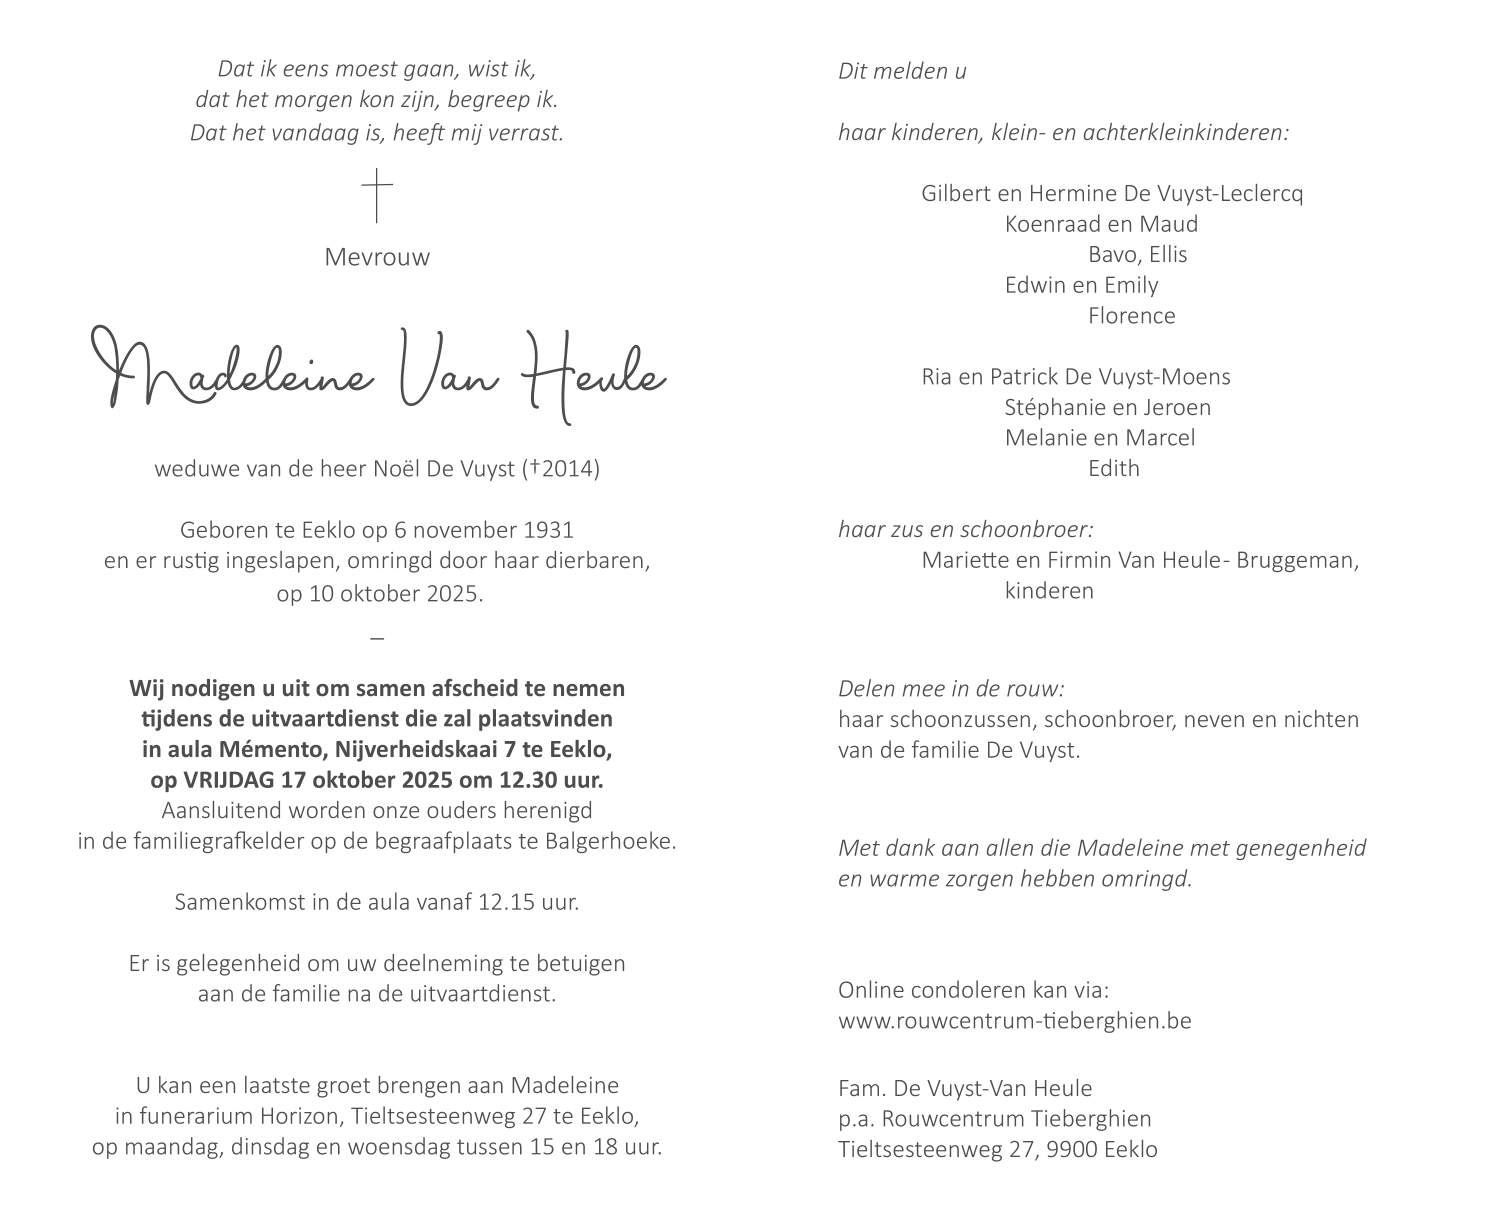 Dat ik eens moest gaan, wist ik,
dat het morgen kon zijn, begreep ik.
Dat het vandaag is, heeft mij verrast.
Mevrouw
Madeleine Van Heule
weduwe van de heer Noël De Vuyst (†2014)
Geboren te Eeklo op 6 november 1931
en er rustig ingeslapen, omringd door haar dierbaren,
op 10 oktober 2025.
–
Wij nodigen u uit om samen afscheid te nemen
tijdens de uitvaartdienst die zal plaatsvinden
in aula Mémento, Nijverheidskaai 7 te Eeklo,
op VRIJDAG 17 oktober 2025 om 12.30 uur.
Aansluitend worden onze ouders herenigd
in de familiegrafkelder op de begraafplaats te Balgerhoeke.
Samenkomst in de aula vanaf 12.15 uur.
Er is gelegenheid om uw deelneming te betuigen
aan de familie na de uitvaartdienst.
U kan een laatste groet brengen aan Madeleine
in funerarium Horizon, Tieltsesteenweg 27 te Eeklo,
op maandag, dinsdag en woensdag tussen 15 en 18 uur.
Dit melden u
haar kinderen, klein- en achterkleinkinderen:
Gilbert en Hermine De Vuyst-Leclercq
Koenraad en Maud
Bavo, Ellis
Edwin en Emily
Florence
Ria en Patrick De Vuyst-Moens
Stéphanie en Jeroen
Melanie en Marcel
Edith
haar zus en schoonbroer:
Mariette en Firmin Van Heule- Bruggeman,
kinderen
Delen mee in de rouw:
haar schoonzussen, schoonbroer, neven en nichten
van de familie De Vuyst.
Met dank aan allen die Madeleine met genegenheid
en warme zorgen hebben omringd.
Online condoleren kan via:
www.rouwcentrum-tieberghien.be
Fam. De Vuyst-Van Heule
p.a. Rouwcentrum Tieberghien
Tieltsesteenweg 27, 9900 Eeklo